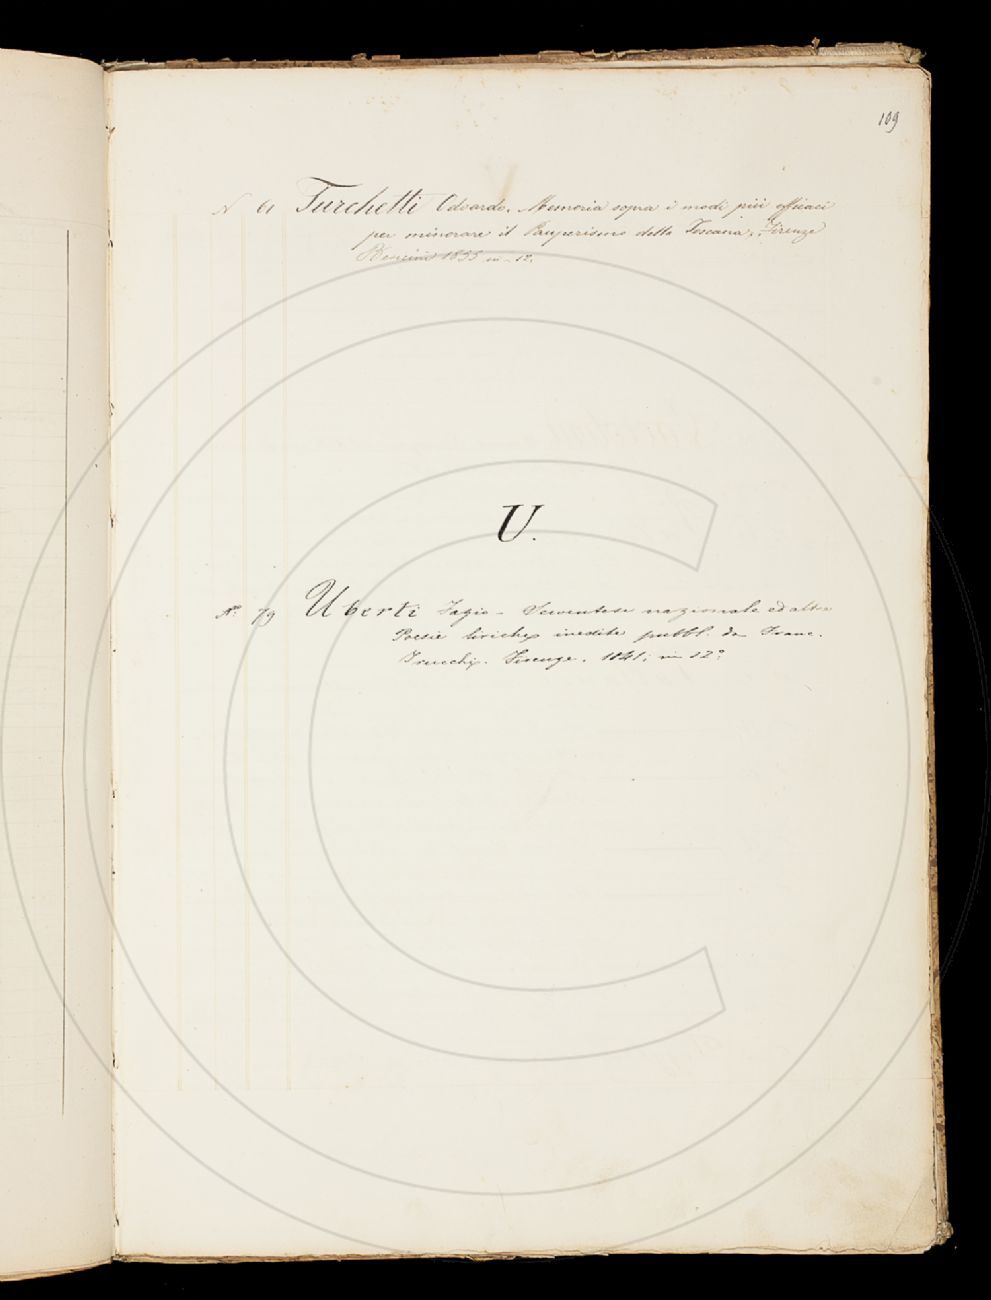 109
N 61 Turchetti Odoardo. Memoria sopra i modi più efficaci
per minorare il Pauperismo della Toscana. Firenze
Bencini 1855 in-12.
U.
N. 79 Uberti Fazio - Serventese nazionale ed altre
Poesie liriche inedite pubbl. da Franc.
Trucchi. Firenze. 1841; in 12°